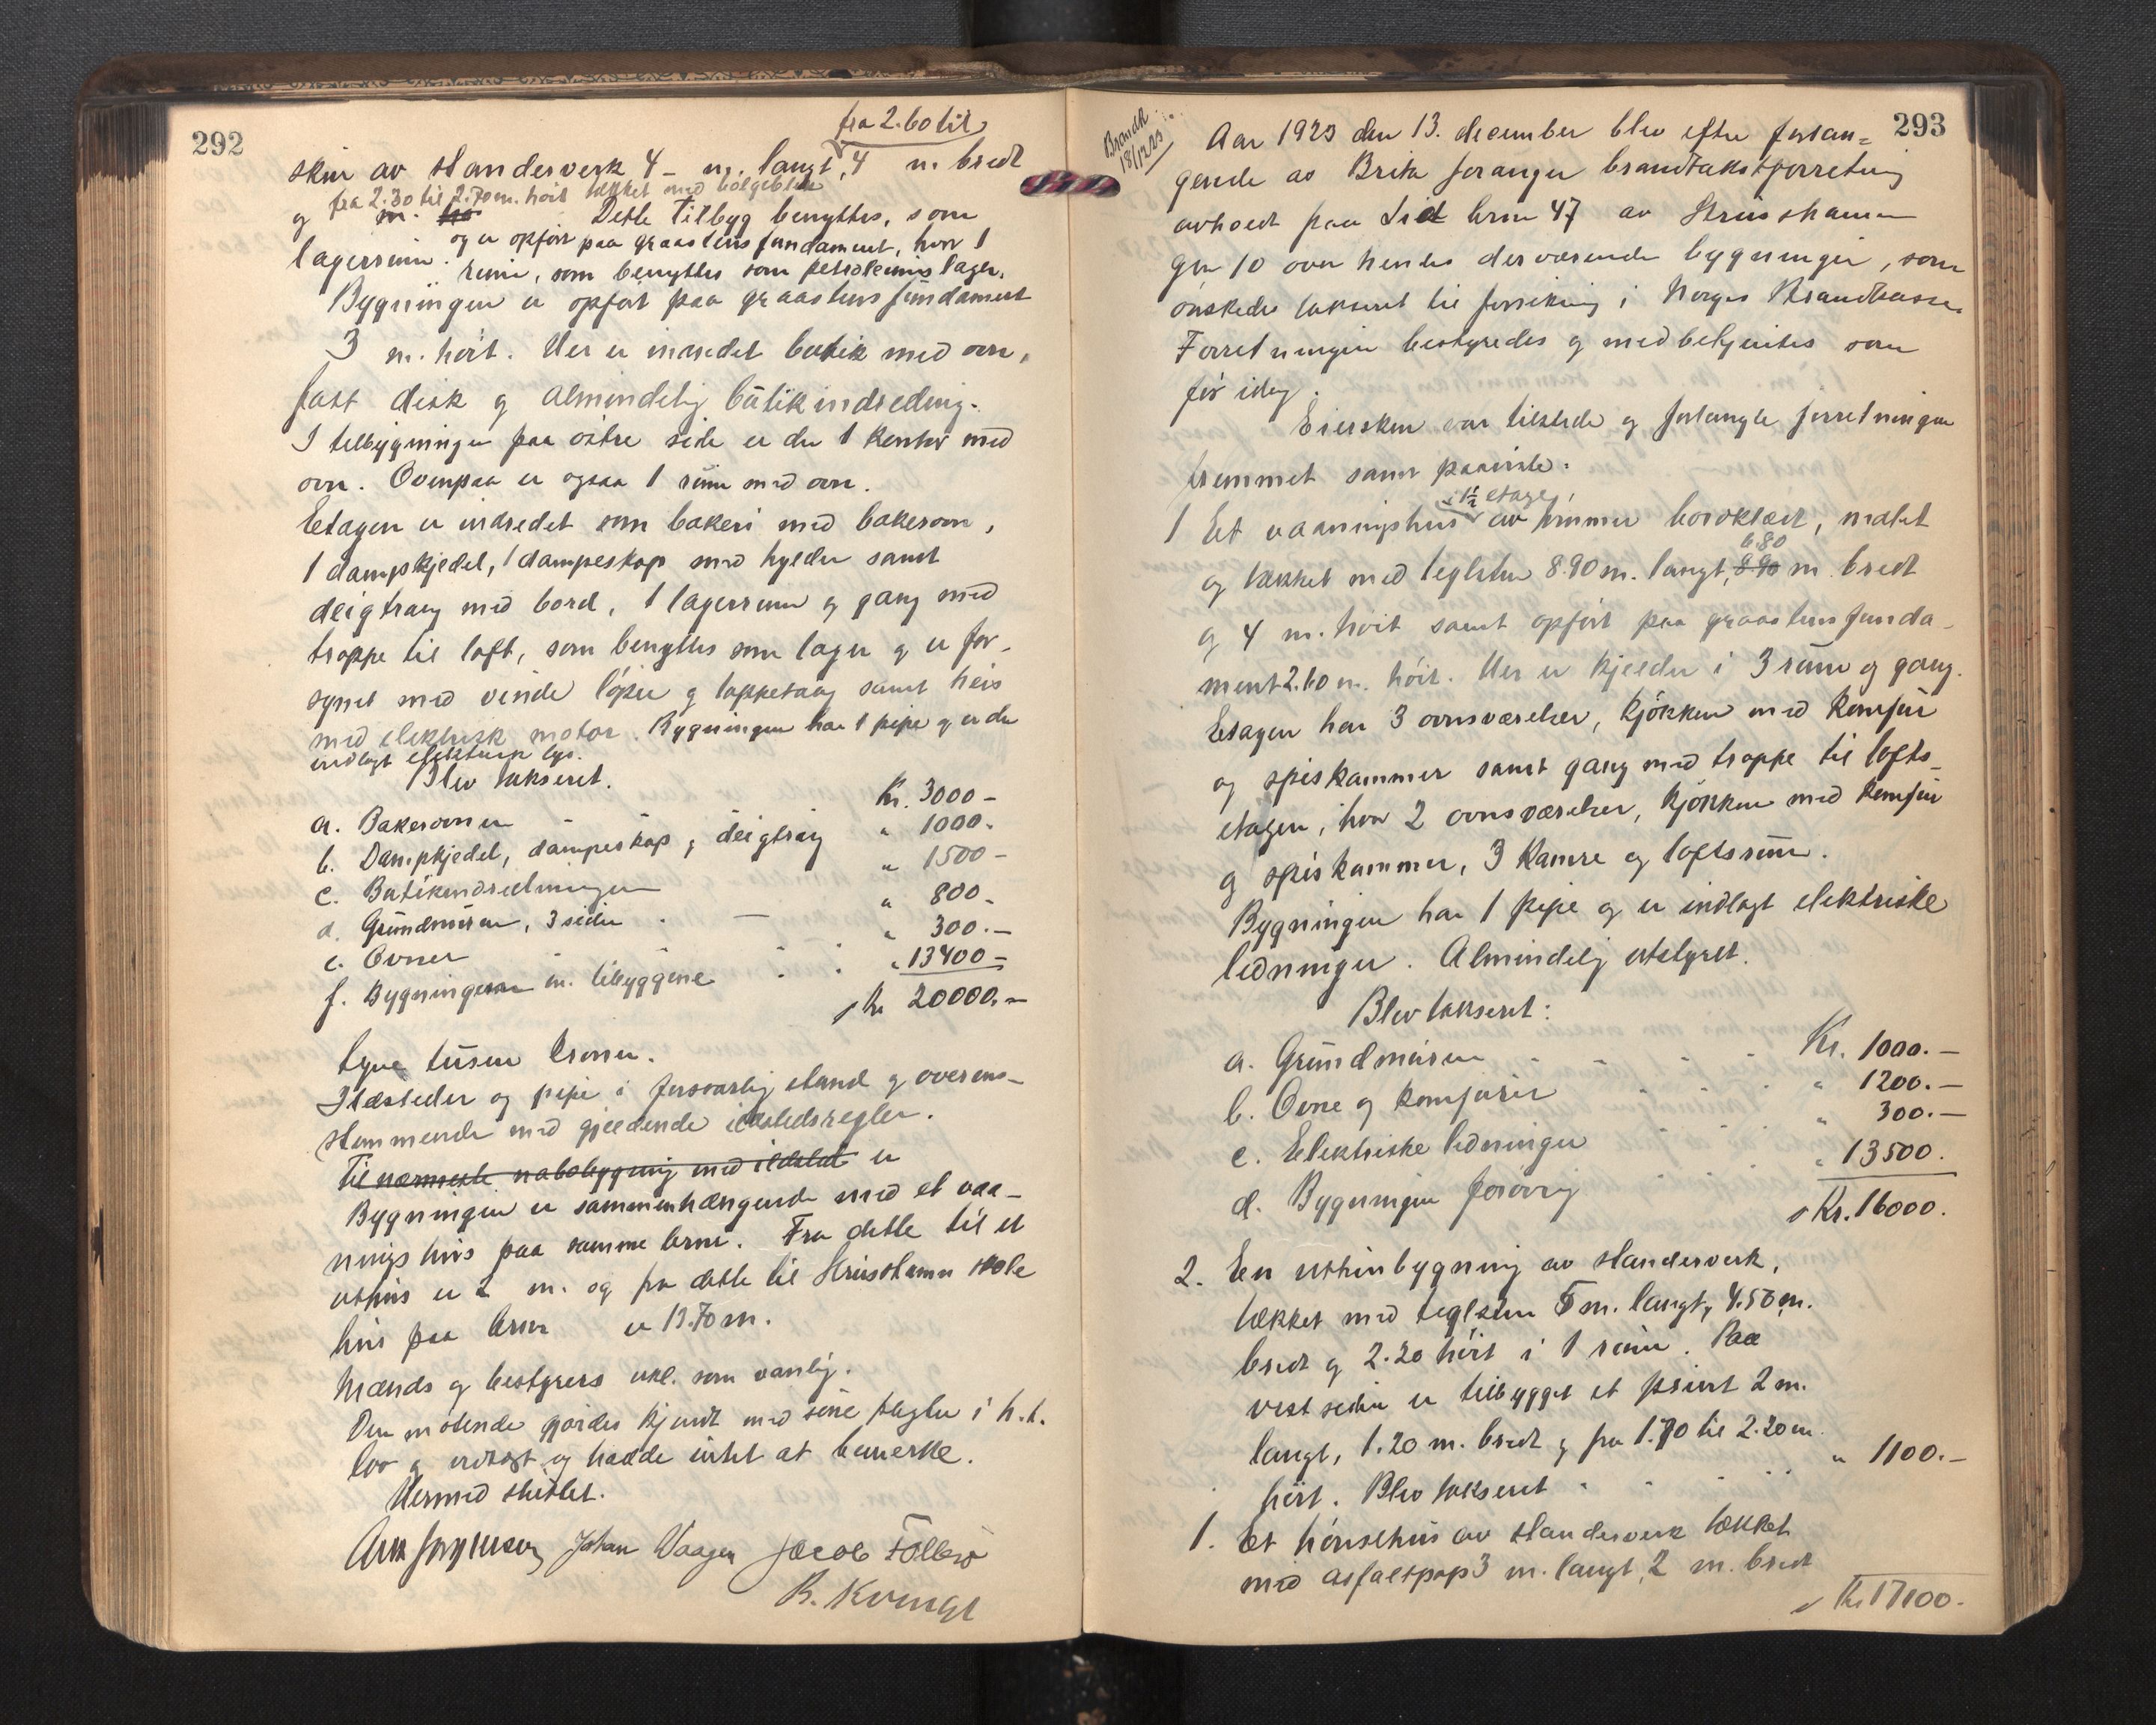 292
fra 2.60 til
skur av standerverk 4 - m. langt, 4 m. bredt
fra 2.30 til 2.70 m. höit tækket med bölgeblik
og m. Dette tilbyg benyttes, som
lagerrum. og er opfört paa graastens fundament, hvor 1
rum, som benyttes som petroleumslager.
Bygningen er opfört paa graastens fundament
3 m. höit. Her er indredet butik med ovn,
fast disk og almindelig butikindredning.
I tilbygningen paa östre side er der 1 kontor med
ovn. Ovenpaa er ogsaa 1 rum med ovn.
Etagen er indredet som bakeri med bakerovn,
1 dampkjedel, 1 dampeskap med hylder samt
deigtraug med bord, 1 lagerrum og gang med
trappe til loft, som benyttes som lager og er for-
synet med vinde löper og takketaug samt heis
med elektrisk motor. Bygningen har 1 pipe og er der
indlagt elektrisk lys.
Blev takseret.
a. Bakerovnen Kr. 3000 -
b. Dampkjedel, dampeskap og deigtraug " 1000.
c. Butikindredningen " 1500 -
d. Grundmuren, 3 sider " 800.
e. Ovner " 300.-
f. Bygningen m. tilbyggene " 13400 -
Kr 20000.-
tyve tusen kroner.
Ildsteder og pipe i forsvarlig stand og overens-
stemmende med gjeldende ildstedsregler.
Til nærmeste nabobygning med ildsted er
Bygningen er sammenhængende med et vaa-
ningshus paa samme brnr. Fra dette til et
uthus er 2 m. og fra dette til Strusshamn skole
hus paa brnr er 13.70 m.
Mænds og bestyrers erkl. som vanlig.
Den mötende gjordes kjendt med sine pligter i h.t.
lov og vedtægt og hadde intet at bemerke.
Hermed sluttet.
Johan Waagen Jacob Follesö
R. Kvingt

293
Brandk
18/12 23
Aar 1923 den 13. december blev efter forlan=
gende av Brita Foranger brandtakstforretning
avholdt paa Lid brnr 47 av Strusshamn
gnr 10 over hendes derværende bygninger, som
önskedes takseret til forsikring i Norges Brandkasse.
Forretningen bestyredes og medbetjentes som
för idag.
Eiersken var tilstede og forlangte forretningen
fremmet samt paaviste:
1½ etage,
1 Et vaaningshus av tömmer bordklædt, malet
6.80
og tækket med teglsten 8.90 m. langt, 8.90 m bredt
og 4 m. höit samt opfört paa graastensfunda-
ment 2.10 m. höit. Her er kjelder i 3 rum og gang.
Etagen har 3 ovnsværelser, kjökken med komfur
og spiskammer samt gang med trappe til lofts-
etagen, hvor 2 ovnsværelser, kjökken med komfur
og spiskammer, 3 kamre og loftsrum.
Bygningen har 1 pipe og er indlagt elektriske
ledninger. Almindelig utstyret.
Blev takseret:
a. Grundmuren Kr. 1000.-
b. Ovne og komfurer " 1200.-
c. Elektriske ledninger " 300.-
d. Bygningen forövrig " 13500.
Kr. 16000.
2. En uthusbygning av standerverk,
tækket med teglsten 5 m. langt, 4.50 m.
bredt og 2.20 höit i 1 rum. Paa
vest siden er tilbygget et privet 2 m.
langt, 1.20 m. bredt og fra 1.70 til 2.20 m.
höit. Blev takseret " 1100.-
1. Et hönsehus av standerverk tækket
med asfaltpap 3 m. langt, 2 m. bredt
Kr 17100.